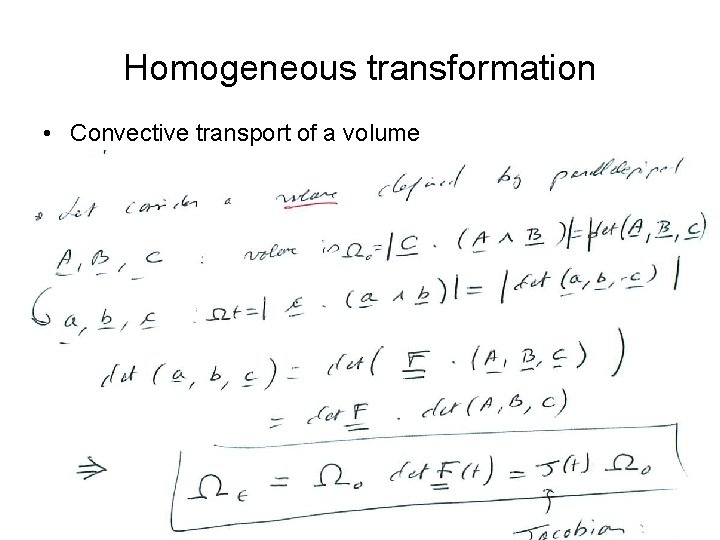 Homogeneous transformation
• Convective transport of a volume
• Let consider a volume defined by paralldepiped
A, B, C : volume is Ω₀ = |C · (A ∧ B)| = |det(A, B, C)
a, b, c : Ωt = | c · (a ∧ b)| = | det (a, b, c) |
det (a, b, c) = det ( F · (A, B, C) )
= det F . det (A, B, C)
⇒ Ωt = Ω₀ det F(t) = J(t) Ω₀
Jacobian :